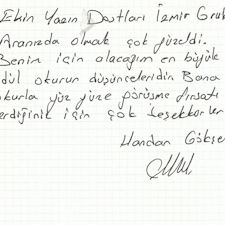 Ekin Yazın Dostları İzmir Grub
Aranızda olmak çok güzeldi.
Benim için alacağım en büyük
dül okurun düşünceleridir. Bana
okurla yüz yüze görüşme fırsatı
erdiğiniz için çok teşekkürler
Handan Gökçe